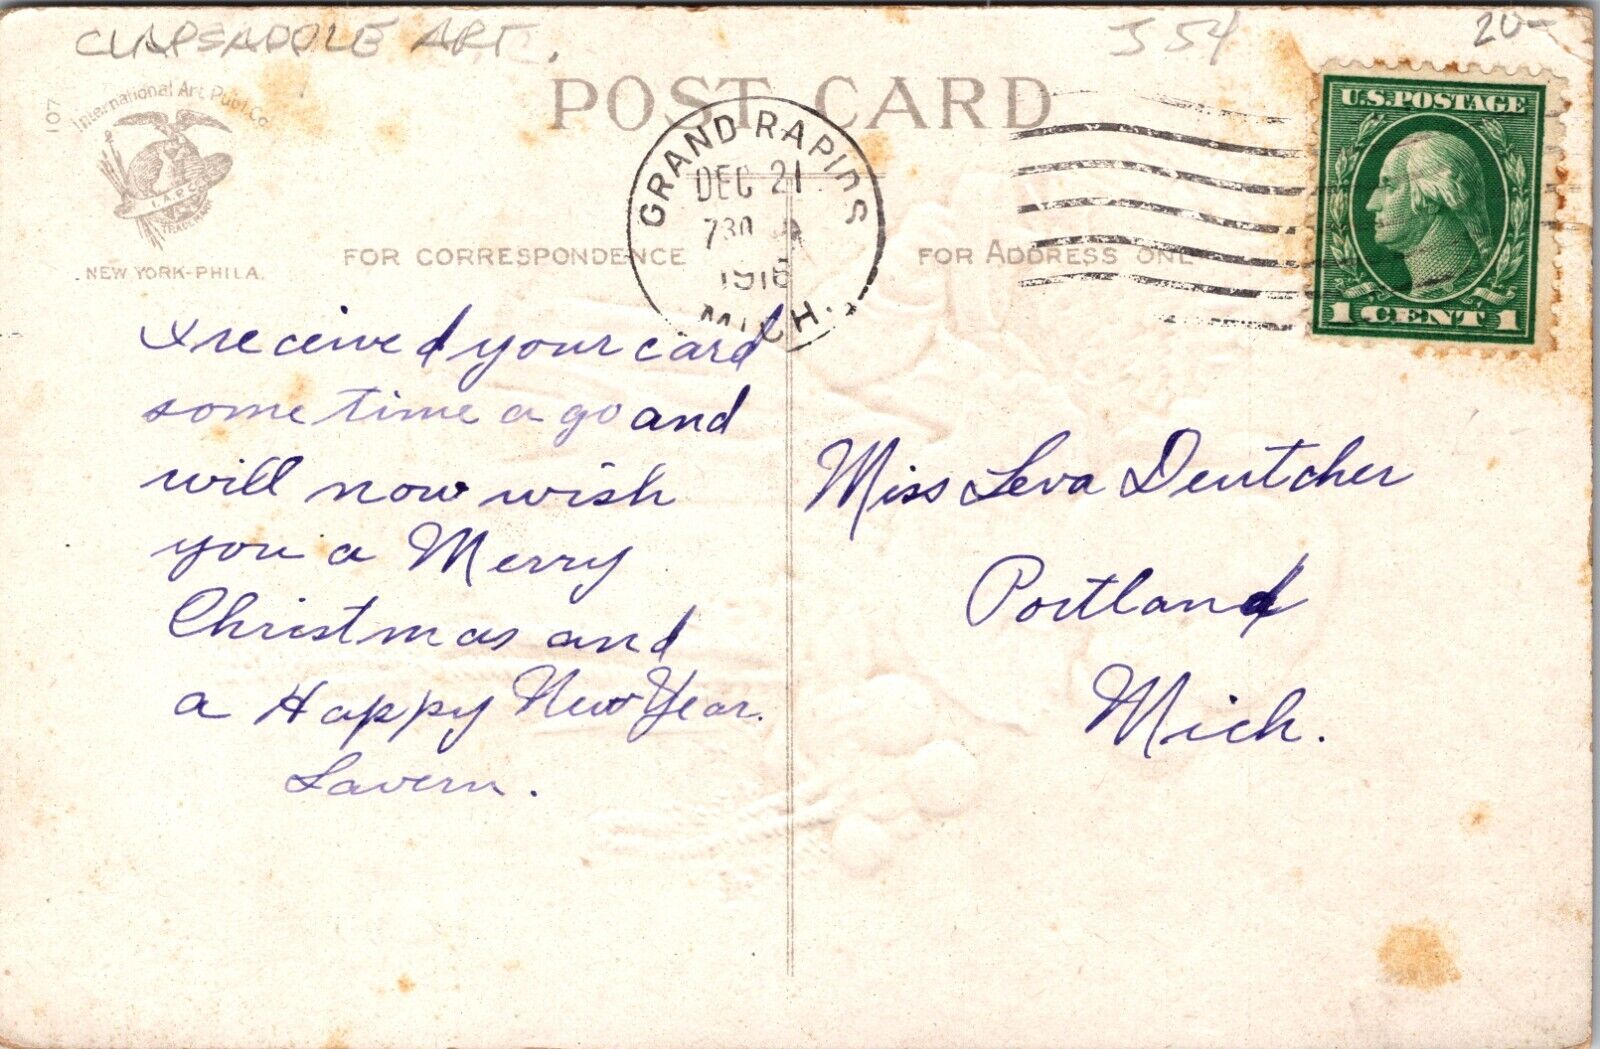 CLAPSADDLE ART.
J 54
20-
107
International Art Publ. Co.
I.A.P.C.
NEW YORK-PHILA.
POST CARD
GRAND RAPIDS
DEC 21
730 A
1916
MICH.
U.S. POSTAGE
1 CENT 1
FOR CORRESPONDENCE
FOR ADDRESS ONLY
I received your card
some time a go and
will now wish
you a Merry
Christmas and
a Happy New Year.
Lavern.
Miss Leva Deutcher
Portland
Mich.